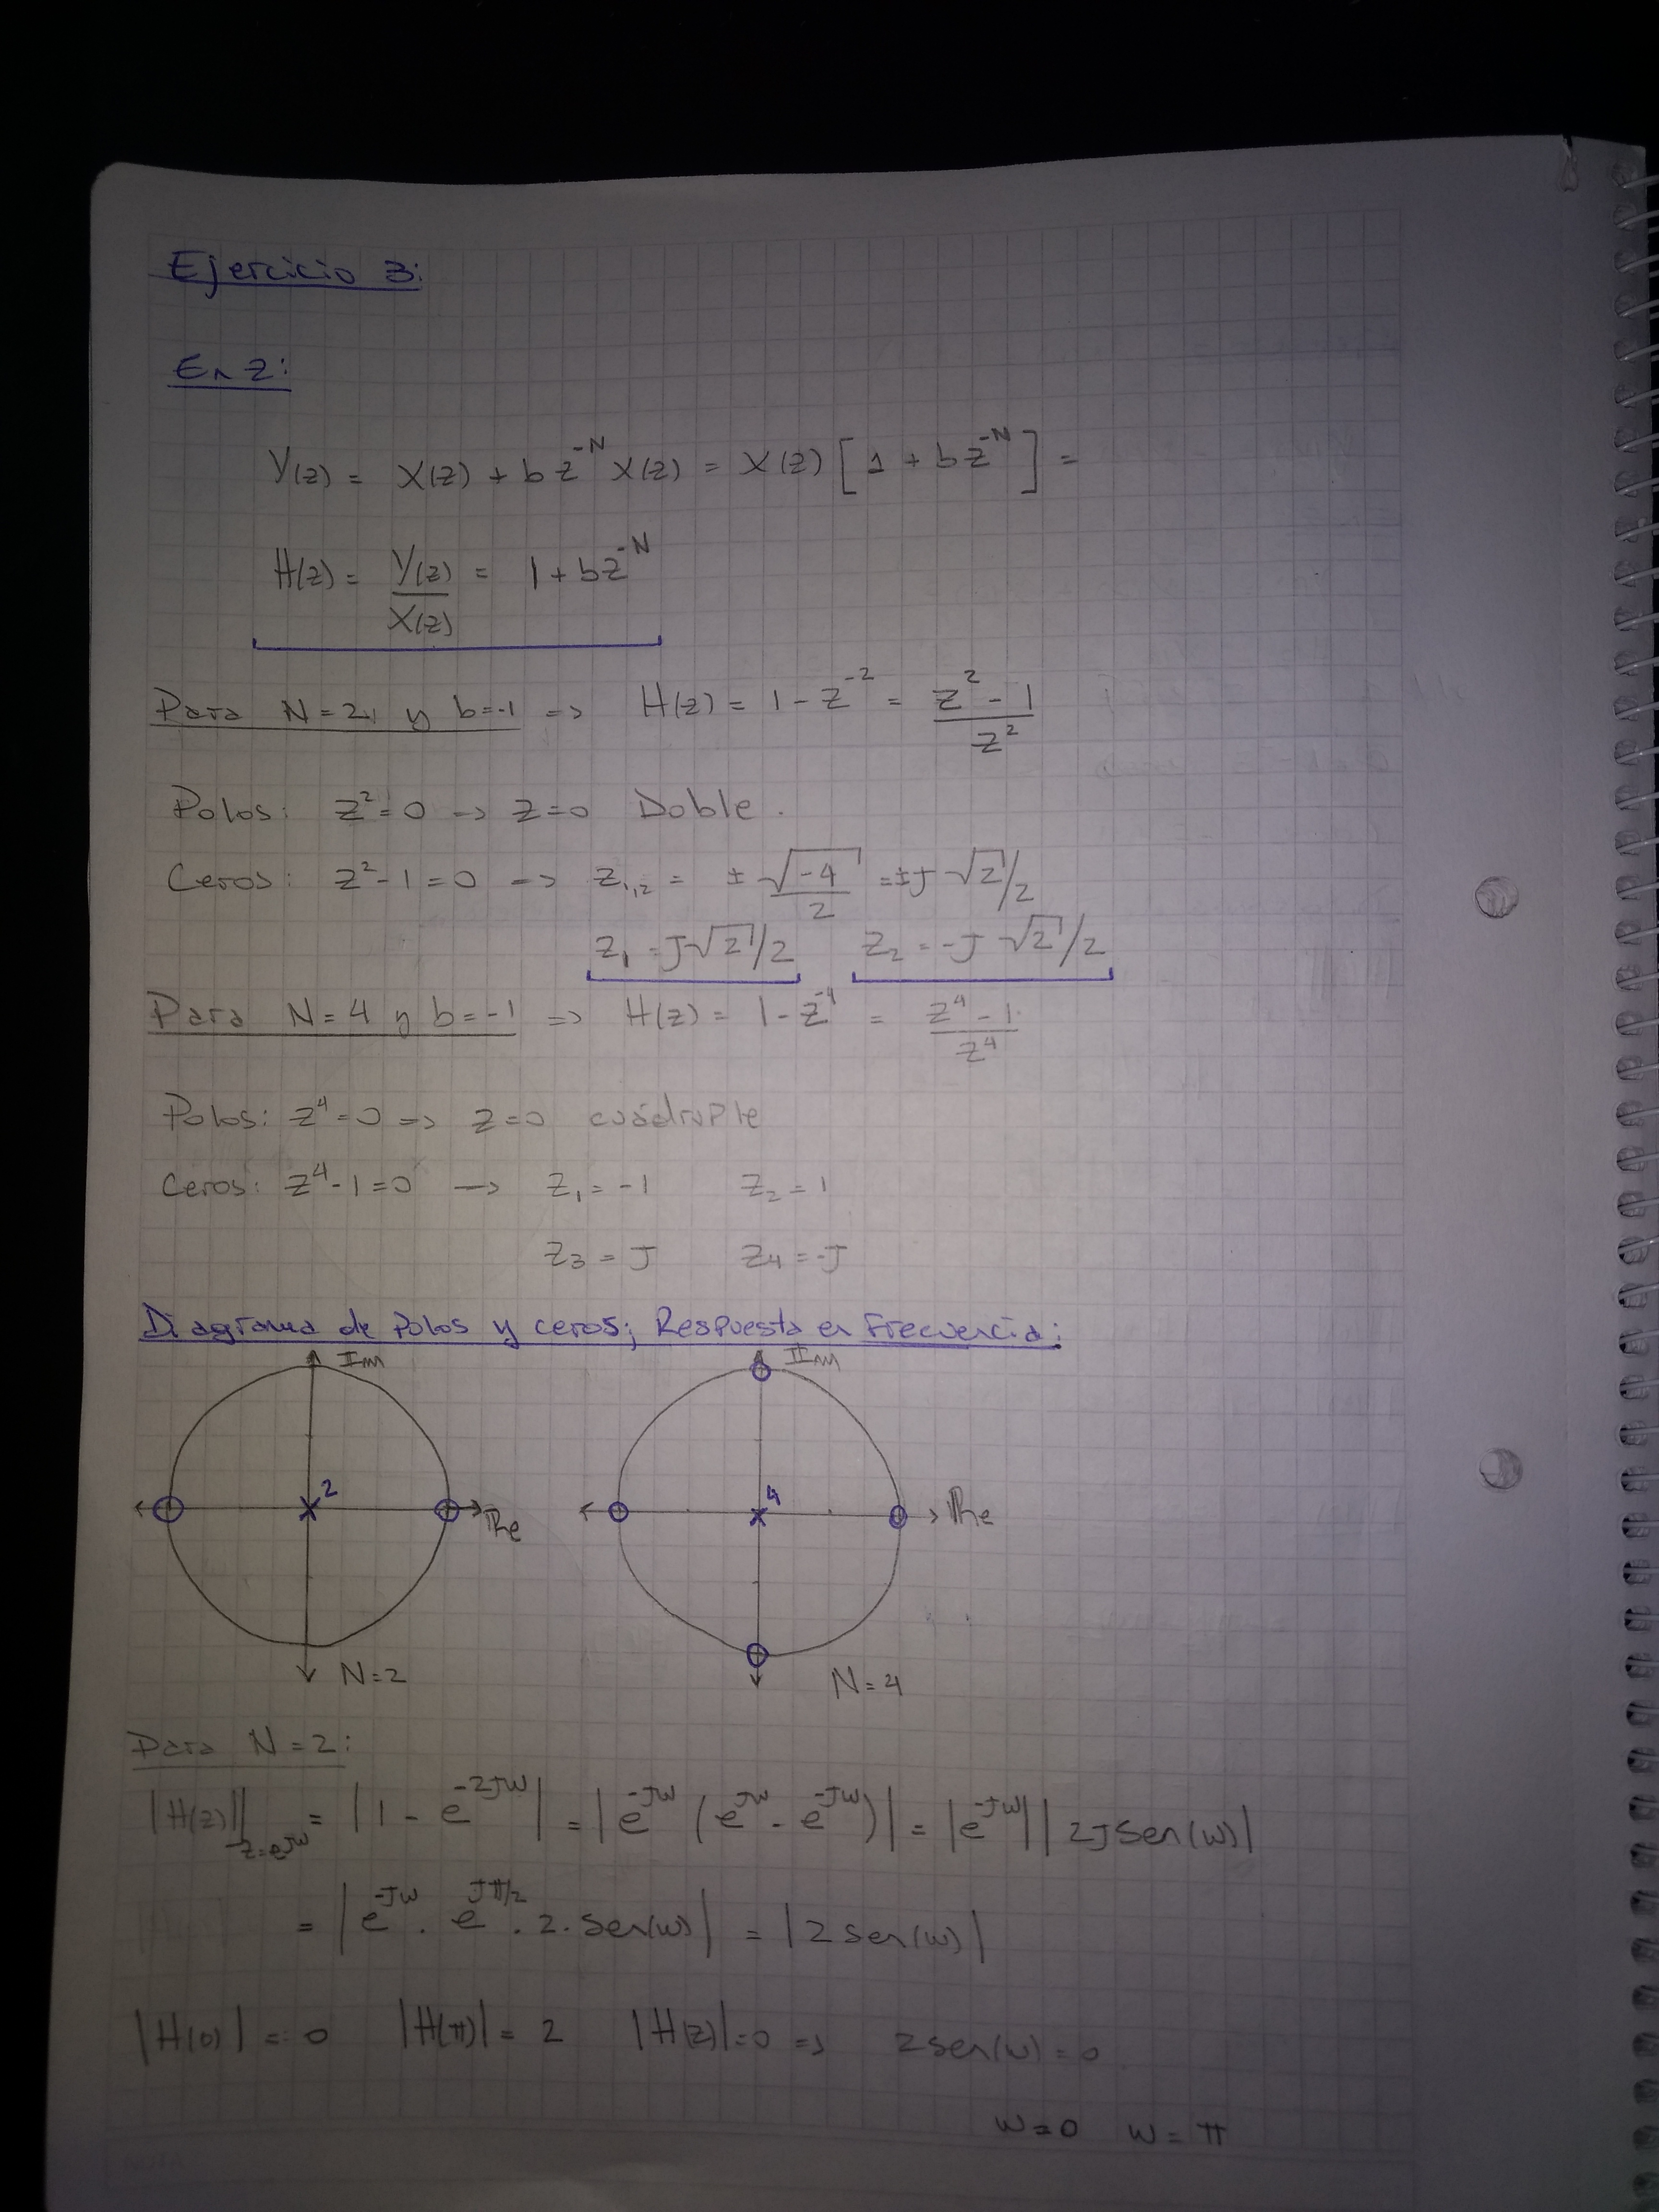 Ejercicio 3:
En z:
Y(z) = X(z) + b z^-N X(z) = X(z) [1 + b z^-N] =
H(z) = Y(z)/X(z) = 1 + bz^-N
Para N=2, y b=-1 => H(z) = 1 - z^-2 = (z^2 - 1)/z^2
Polos: z^2=0 -> z=0 Doble.
Ceros: z^2-1=0 -> z1,2 = ± √-4/2 = ±J √2/2
z1 = J√2/2 z2 = -J √2/2
Para N=4 y b=-1 => H(z) = 1 - z^-4 = (z^4 - 1)/z^4
Polos: z^4=0 => z=0 cuádruple
Ceros: z^4-1=0 -> z1 = -1 z2 = 1
z3 = J z4 = -J
Diagrama de Polos y ceros; Respuesta en Frecuencia:
Im Im
2 Re 4 Re
N=2 N=4
Para N=2:
|H(z)|z=e^Jw = |1 - e^-2Jw| = |e^-Jw (e^Jw - e^-Jw)| = |e^-Jw| |2J Sen(w)|
= |e^-Jw · e^Jπ/2 · 2 · Sen(w)| = |2 sen(w)|
|H(0)| = 0 |H(π)| = 2 |H(z)|=0 => 2sen(w) = 0
w=0 w=π